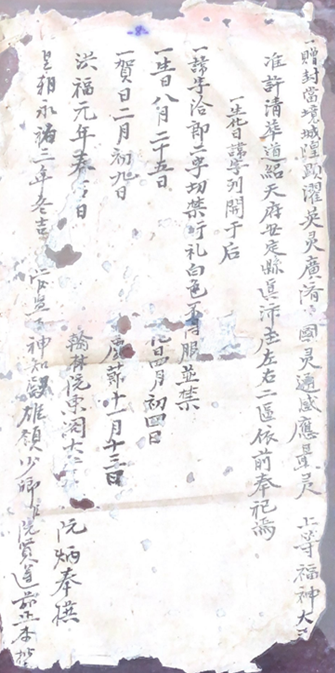 一贈封當境城隍顯濯英灵廣濟國灵通感應最灵上等福神大王
准許清華道紹天府安定縣真沛庄左右二區依前奉祀為
一生化日諱字列開于后
一諱字洽郎二字切禁行礼白色衣服並禁
一生日八月二十五日 化日四月初四日
一賀日二月初九日 慶節十一月十三日
洪福元年春日 翰林院東閣大 阮炳奉撰
皇朝永祐二年冬 神知殿雄領少卿臣阮賢遵前正本